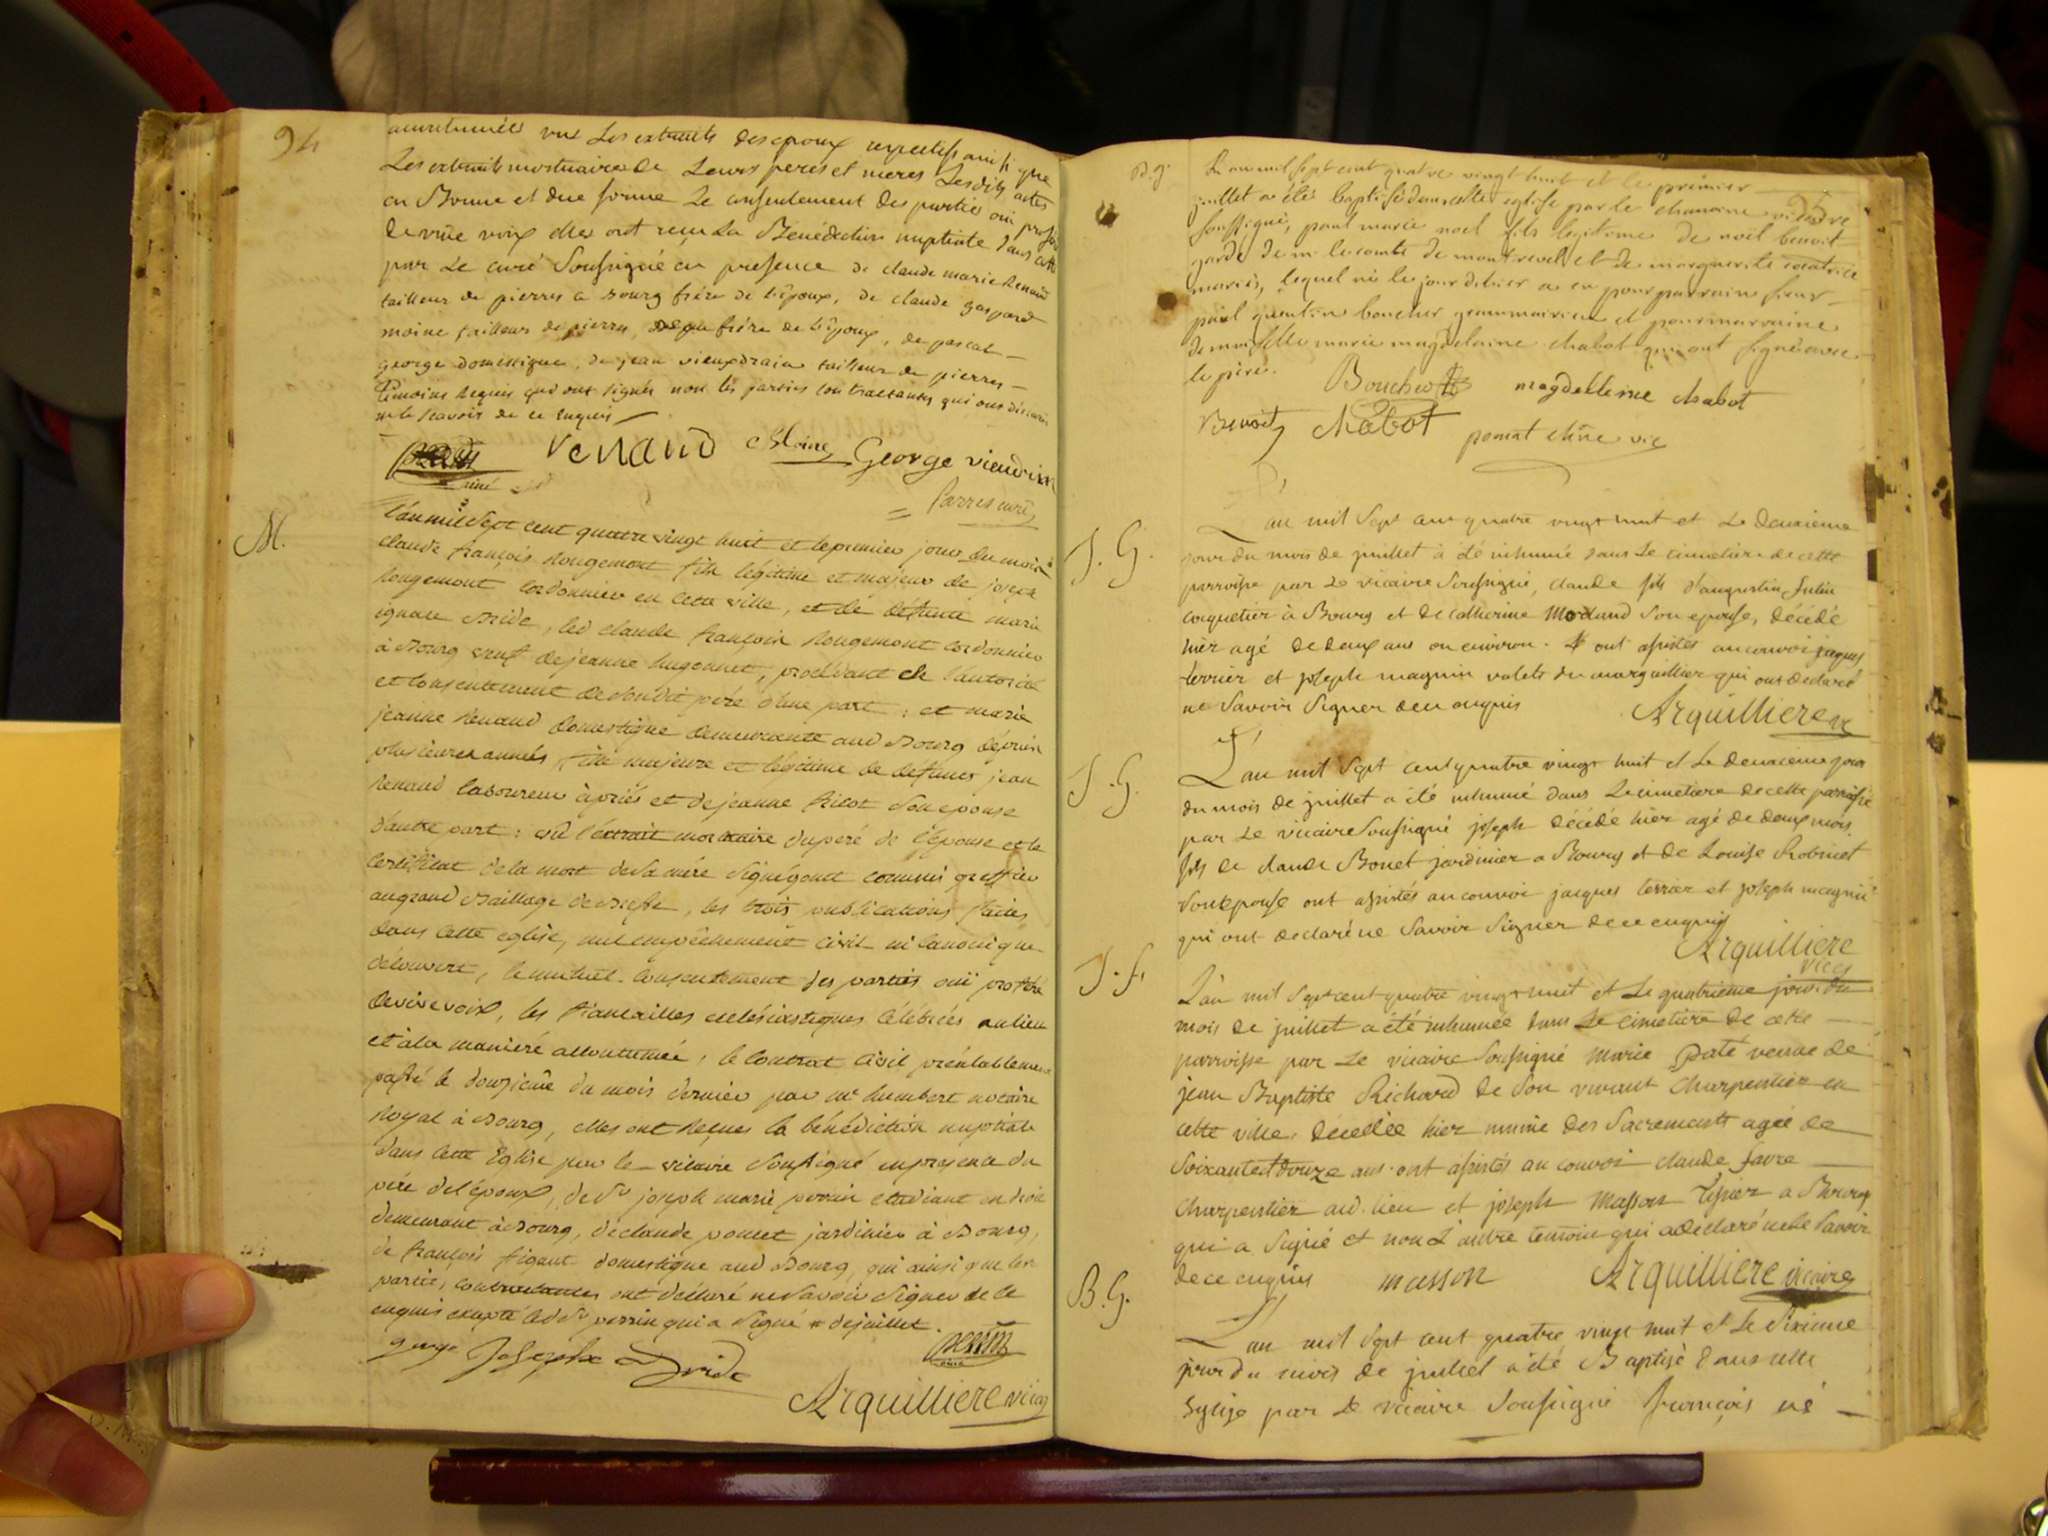 94
accoutumées vu les extraits des epoux respectifs ainsi que
Les extraits mortuaires de Leurs peres et meres Lesdits actes
en Bonne et due forme Le consentement des parties oui proferé
de vive voix elles ont reçu La Bénédiction nuptiale dans cette
par Le curé Soussigné en presence de claude marie Renaud
tailleur de pierres a Bourg frére de l'époux, de claude gaspard
moine tailleur de pierres, frére de l'époux, de pascal
george domestique, de jean vieuxdrain tailleur de pierres
témoins requis qui ont signés non les parties contractantes qui ont déclarés
ne le scavoir de ce enquis
Renaud Moine George vieudrin
parres curé
M.
L'an mil Sept cent quatre vingt huit et le premier jour du mois #
claude françois Rougemont fils légitime et majeur de joseph
Rougemont cordonnier en cette ville, et de défunte marie
ignace Bride, led claude françois Rougemont cordonnier
à Bourg veuf de jeanne hugonnet, procédant de l'autorité
et consentement de sondit pére d'une part ; et marie
jeanne Renaud domestique demeurante aud Bourg dépuis
plusieures années, fille majeure et légitime de defunct jean
Renaud laboureur à priés et de jeanne son epouse
d'autre part : vû l'éxtrait mortuaire du pere de l'épouse et le
certificat de la mort de sa mére Signé gonet commis greffier
au grand Baillage de Bresse, les trois publications faites
dans cette eglise, nul empêchement civil ni canonique
découvert, le mutuel consentement des parties oui proféré
de vive voix, les fiançailles ecclésiastiques célébrées au lieu
et à la maniére accoutumée, le contrat civil préalablement
passé le douzieme du mois dernier par me humbert notaire
Royal à Bourg, elles ont Reçues la bénédiction nuptiale
dans cette Eglise par le vicaire Soussigné en presence du
pére de l'époux, de Sr joseph marie perrin etudiant en droit
demeurant à Bourg, de claude poncet jardinier à Bourg,
de françois figant domestique aud Bourg, qui ainsi que les
parties contractantes ont déclaré ne Savoir Signer de ce
enquis excepté led Sr perrin qui a Signé # de juillet.
Joseph Bride perrin
Arquilliere vicaire
95
B.g.
L'an mil sept cent quatre vingt huit et le premier
juillet a été baptisé dans cette eglise par le chanoine vicaire
soussigné, paul marie noel fils légitime de noël benoit
garde de mr le comte de montrevel et de marguerite
mariés, lequel né le jour d'hier a eu pour parrain sieur
paul quentin boucher grammairien et pour marraine
demoiselle marie magdelaine chabot qui ont signé avec
le pére.
Boucher magdelleine chabot
Benoit chabot pomat chne vic
S. G.
L'an mil Sept cent quatre vingt huit et Le deuxieme
jour du mois de juillet à été inhumé dans Le cimetiere de cette
parroisse par Le vicaire Soussigné, claude fils d'augustin Julin
coquetier à Bourg et de catherine Morand Son epouse, décédé
hier agé de deux ans ou environ. ont assistés au convoi jaques
terrier et joseph magnin valets du marguillier qui ont déclaré
ne Savoir Signer de ce enquis Arquilliere vic
S. G.
L'an mil Sept cent quatre vingt huit et Le deuxieme jour
du mois de juillet a été inhumé dans Le cimetiere de cette paroisse
par Le vicaire Soussigné joseph décédé hier agé de deux mois
fils de claude Bonet jardinier a Bourg et de Louise Robinet
Son epouse ont assistés au convoi jacques terrier et joseph magnin
qui ont déclaré ne Savoir Signer de ce enquis
Arquilliere
vicaire
S. F.
L'an mil Sept cent quatre vingt huit et Le quatrieme jour du
mois de juillet a été inhumée dans Le cimetiere de cette
parroisse par Le vicaire Soussigné Marie paté veuve de
jean Baptiste Richard de Son vivant Charpentier en
cette ville, décédée hier munie des Sacrements agée de
Soixante et douze ans. ont assistés au convoi claude favre
Charpentier aud. lieu et joseph Masson Tissier a Bourg
qui a Signé et non L'autre temoin qui a déclaré ne le Savoir
de ce enquis masson Arquilliere vicaire
B. G.
L'an mil Sept cent quatre vingt huit et Le Sixieme
jour du mois de juillet a été Baptisé dans cette
Eglise par Le vicaire Soussigné françois né